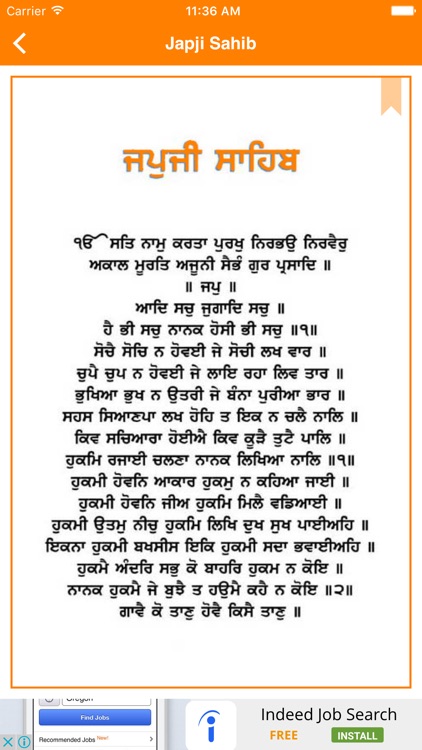 Carrier 11:36 AM
Japji Sahib
ਜਪੁਜੀ ਸਾਹਿਬ
ੴ ਸਤਿ ਨਾਮੁ ਕਰਤਾ ਪੁਰਖੁ ਨਿਰਭਉ ਨਿਰਵੈਰੁ
ਅਕਾਲ ਮੂਰਤਿ ਅਜੂਨੀ ਸੈਭੰ ਗੁਰ ਪ੍ਰਸਾਦਿ ॥
॥ ਜਪੁ ॥
ਆਦਿ ਸਚੁ ਜੁਗਾਦਿ ਸਚੁ ॥
ਹੈ ਭੀ ਸਚੁ ਨਾਨਕ ਹੋਸੀ ਭੀ ਸਚੁ ॥੧॥
ਸੋਚੈ ਸੋਚਿ ਨ ਹੋਵਈ ਜੇ ਸੋਚੀ ਲਖ ਵਾਰ ॥
ਚੁਪੈ ਚੁਪ ਨ ਹੋਵਈ ਜੇ ਲਾਇ ਰਹਾ ਲਿਵ ਤਾਰ ॥
ਭੁਖਿਆ ਭੁਖ ਨ ਉਤਰੀ ਜੇ ਬੰਨਾ ਪੁਰੀਆ ਭਾਰ ॥
ਸਹਸ ਸਿਆਣਪਾ ਲਖ ਹੋਹਿ ਤ ਇਕ ਨ ਚਲੈ ਨਾਲਿ ॥
ਕਿਵ ਸਚਿਆਰਾ ਹੋਈਐ ਕਿਵ ਕੂੜੈ ਤੁਟੈ ਪਾਲਿ ॥
ਹੁਕਮਿ ਰਜਾਈ ਚਲਣਾ ਨਾਨਕ ਲਿਖਿਆ ਨਾਲਿ ॥੧॥
ਹੁਕਮੀ ਹੋਵਨਿ ਆਕਾਰ ਹੁਕਮੁ ਨ ਕਹਿਆ ਜਾਈ ॥
ਹੁਕਮੀ ਹੋਵਨਿ ਜੀਅ ਹੁਕਮਿ ਮਿਲੈ ਵਡਿਆਈ ॥
ਹੁਕਮੀ ਉਤਮੁ ਨੀਚੁ ਹੁਕਮਿ ਲਿਖਿ ਦੁਖ ਸੁਖ ਪਾਈਅਹਿ ॥
ਇਕਨਾ ਹੁਕਮੀ ਬਖਸੀਸ ਇਕਿ ਹੁਕਮੀ ਸਦਾ ਭਵਾਈਅਹਿ ॥
ਹੁਕਮੈ ਅੰਦਰਿ ਸਭੁ ਕੋ ਬਾਹਰਿ ਹੁਕਮ ਨ ਕੋਇ ॥
ਨਾਨਕ ਹੁਕਮੈ ਜੇ ਬੁਝੈ ਤ ਹਉਮੈ ਕਹੈ ਨ ਕੋਇ ॥੨॥
ਗਾਵੈ ਕੋ ਤਾਣੁ ਹੋਵੈ ਕਿਸੈ ਤਾਣੁ ॥
Find Jobs
Recommended Jobs New!
Indeed Job Search
FREE INSTALL